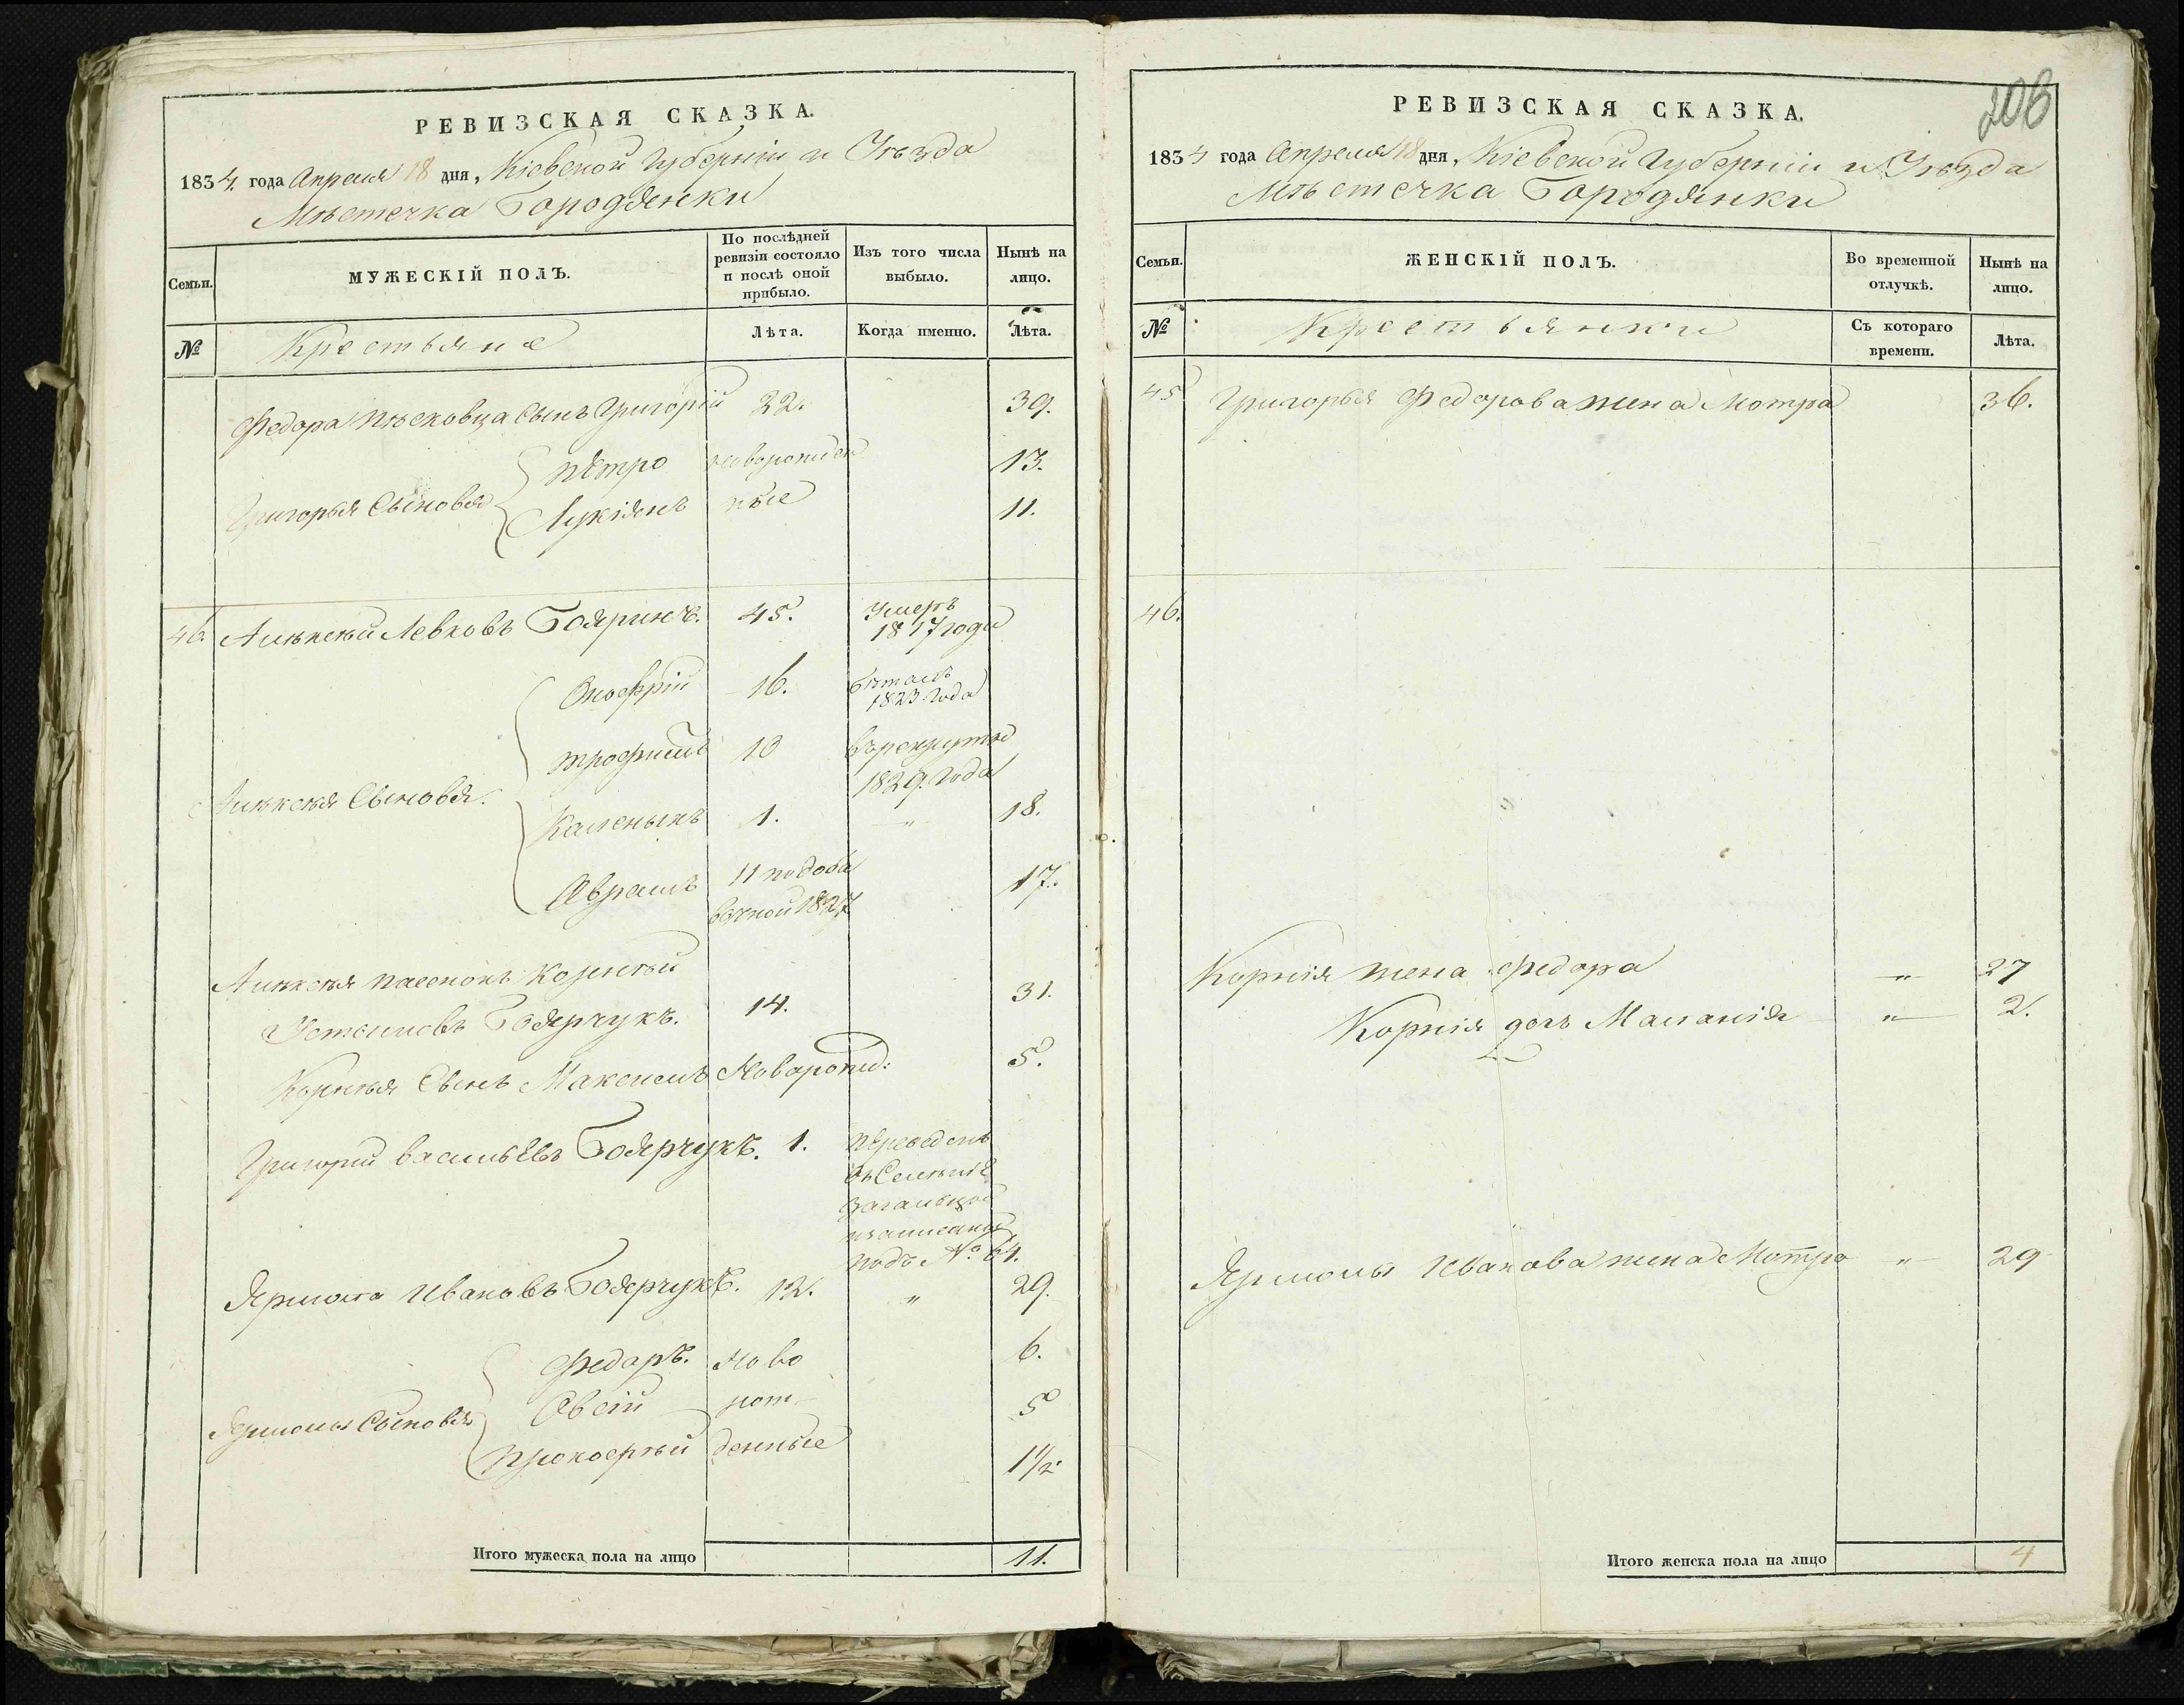 РЕВИЗСКАЯ СКАЗКА.
1834 года Апреля 18 дня, Кіевской Губерніи и Уѣзда
Мѣстечка Городянки
Семьи.
МУЖЕСКІЙ ПОЛЪ.
По послѣдней ревизіи состояло и послѣ оной прибыло.
Изъ того числа выбыло.
Нынѣ на лицо.
№
Крестьяне
Лѣта.
Когда именно.
Лѣта.
Федора Пѣсковца Сынъ Григорій 22. 39.
Григорья Сыновья
Пѣтро новорожден 13.
Лукіянъ ные 11.
46. Алѣксѣй Левковъ Бояринъ. 45. Умеръ 1817 года
Алѣксѣя Сыновья.
Онофрій 16. бѣжалъ 1823. года
Трофимъ 10 въ рекруты 1829. года
Каленыкъ 1. " 18.
Аврамъ 11 по доба вочной 1827 17.
Алѣксѣя пасенокъ Корнѣй
Устимовъ Боярчукъ. 14. 31.
Корнѣя Сынъ МаксимъНоворожд: 5.
Григорій Васильѣвъ Боярчукъ. 1. Пѣреведенъ
подъ № 64.
Ярмола Ивановъ Боярчукъ. 12. " 29.
Ярмолы Сыновья
Федоръ. Ново 6.
Овсій рож 5
Прокофѣй денные 1 1/2
Итого мужеска пола на лицо 11.
206
РЕВИЗСКАЯ СКАЗКА.
1834 года Апреля 18 дня, Кіевской Губерніи и Уѣзда
Мѣстечка Городянки
Семьи.
ЖЕНСКІЙ ПОЛЪ.
Во временной отлучкѣ.
Нынѣ на лицо.
№
Крестьянки
Съ котораго времени.
Лѣта.
45 Григорья Федорова жена Мотра 36.
46.
Корнія жена Федора " 27
Корнія дочь Маланія " 2.
Ярмолы Иванова жена Мотра " 29
Итого женска пола на лицо 4